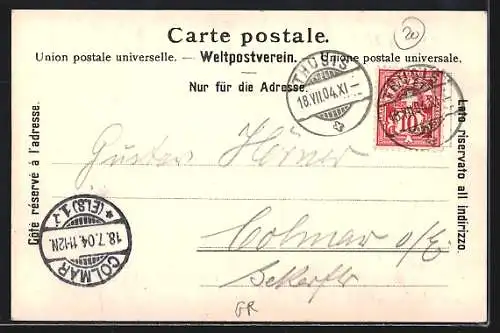 20
Carte postale.
Union postale universelle. — Weltpostverein. — Unione postale universale.
Nur für die Adresse.
Côté réservé à l'adresse.
Lato riservato all indirizzo.
THUSIS
18.VII.04.XI
10
Gustav
Colmar o/E.
COLMAR
18.7.04.11-12N.
* (ELS) 1. *
GR